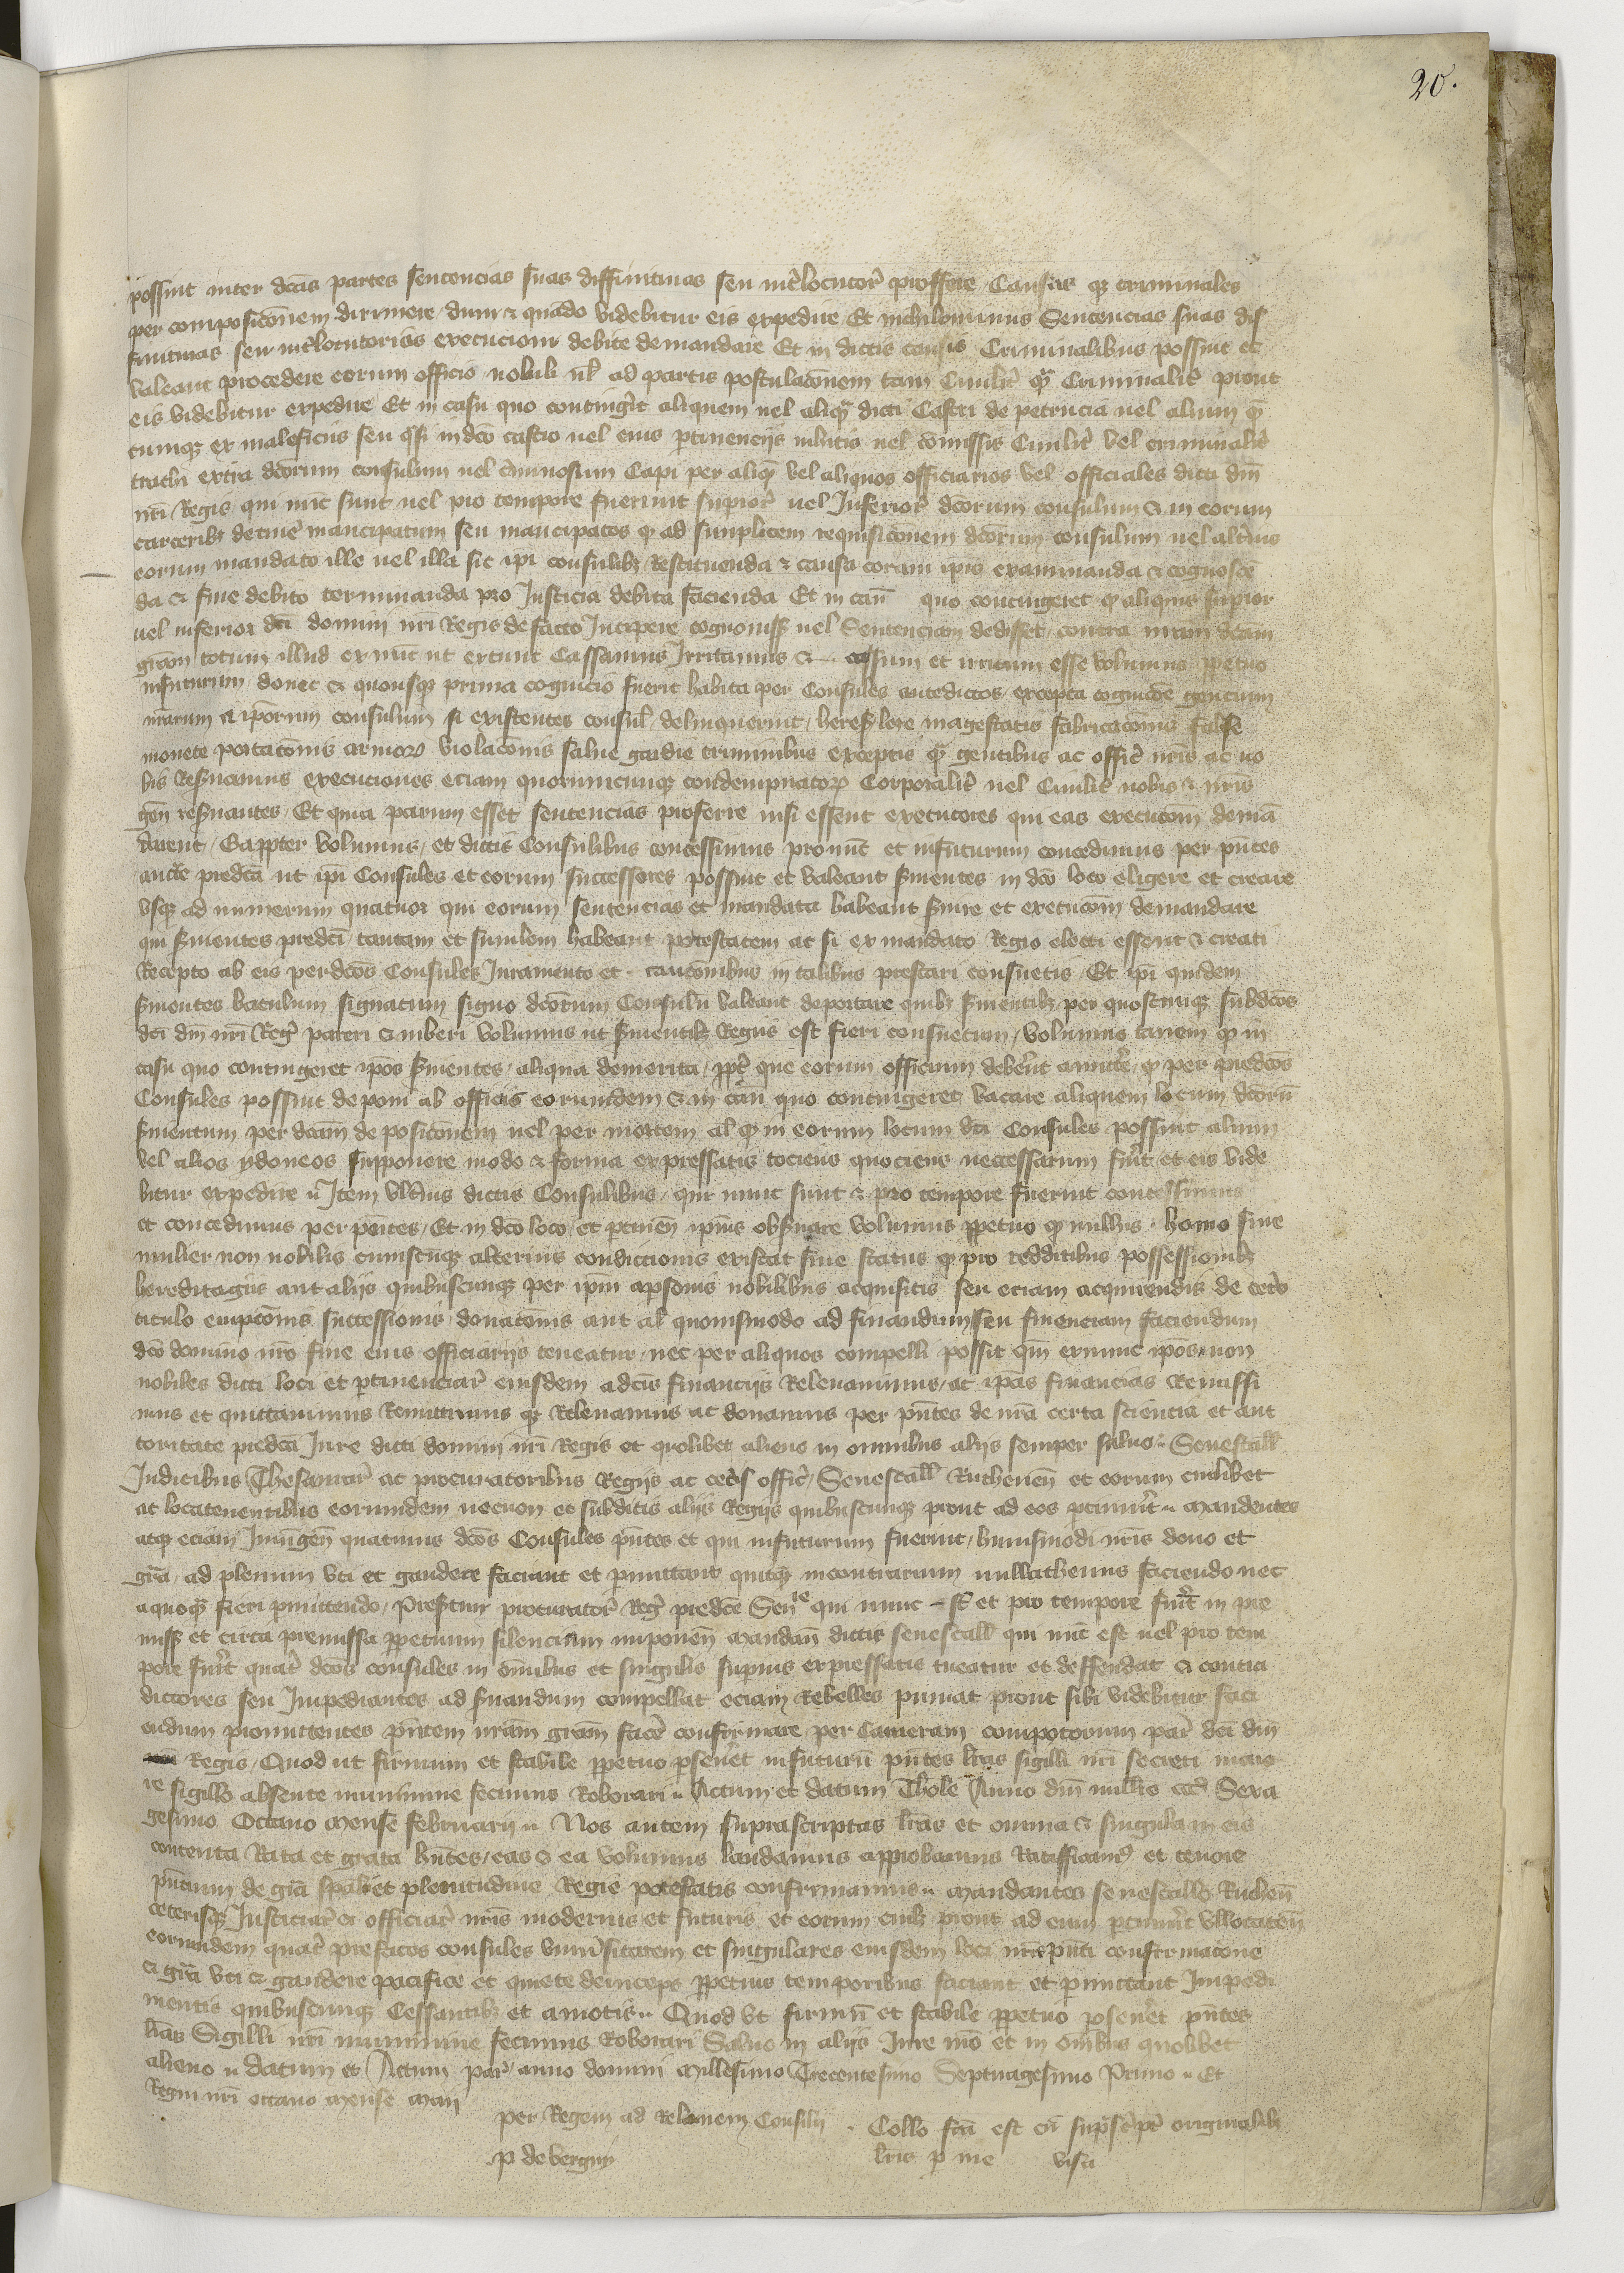 20.
possint inter dcas partes sentencias suas diffinitivas seu int'locutor' proffere Causas q3 criminales
per composiconem dirimere dum & quando videbitur eis expedire Et nichilominus Sentencias suas dif
finitivas seu int'locutorias execucioni debite demandare Et in dictis causis Criminalibus possint et
valeant procedere eorum officio nobili vl' ad partis postulaconem tam Civilit' q' Criminalit' prout
eis videbitur expedire Et in casu quo conting'it aliquem vel aliq' dicti Castri de petrucia vel alium q'
cumq3 ex maleficiis seu q'si in dco castro vel eius ptinenciis illatis vel comissis Civilit' vel criminalit'
trahi extra dcorum consulum vel Capi per aliq' vel aliquos officiarios vel officiales dicti dni
nri Regis qui nunc sunt vel pro tempore fuerint supior' vel Inferior' dcorum consulum & in eorum
carcerib3 detiner' mancipatum seu mancipatos q' ad simplicem requisiconem dcorum consulum vel alt'ius
eorum mandato ille vel illa sic ipi consulib3 Restituenda & causa coram ipis examinanda & cognosce
da & fine debito terminanda pro Justicia debita facienda Et in casu quo contingeret q' aliquis supior
vel inferior dci domini nri Regis de facto Incipere cognoniss3 vel Sentenciam dedisset contra nram dcam
gram totum illud ex nunc ut extunc Cassamus Irritamus & cassum et irritum esse volumus ppetuo
infuturum donec & quousq3 prima cognicio fuerit habita per Consules antedictos excepta cognicoe gencium
nrarum & iporum consulum si existentes consul' delinquerint heres' lese magestatis fabricaconis false
monete portaconis armor' violaconis salve gardie criminibus exceptis q' gentibus ac offic' nris ac no
bis Res'vamus execuciones eciam quorumcunq3 condempnator' Corporalit' vel Civilit' nobis & nris
gen' res'vantes Et quia parum esset sentencias proferre nisi essent executores qui eas execuconi deman
darent Eappter volumus et dictis Consulibus concessimus pronunc et infuturum concedimus per pntes
aucte predca ut ipi Consules et eorum successores possint et valeant s'vientes in dco loco eligere et creare
vsq3 ad numerum quatuor qui eorum sentencias et mandata habeant s'vire et execuconi demandare
qui s'vientes predci tantam et similem habeant potestatem ac si ex mandato Regio electi essent & creati
Recepto ab eis per dcos Consules Juramento et cauconibus in talibus prestari consuetis Et ipi quidem
s'vientes baculum signatum signo dcorum Consulu valeant deportare quib3 s'vientib3 per quoscunq3 subdcos
dci dni nri Reg' pareri & iuberi volumus ut s'vientib3 Regiis est fieri consuetum volumus tamen q' in
casu quo contingeret ipos s'vientes aliqua demerita ppt' que eorum officium deberent amitt'e q' per predcos
Consules possint deponi ab officiis eorumdem & in casu quo contingeret vacare aliquem locum dcoru
s'vientum per dcam deposiconem vel per mortem al' q' in eorum locum dci Consules possint alium
vel alios ydoneos supponere modo & forma expressatis tociens quociens neccessarium fu'it et eis vide
bitur expedire Item vlt'ius dictis Consulibus qui nunc sunt & pro tempore fuerint concessimus
et concedimus per pntes Et in dco loco et ptinen' ipius obs'vare volumus ppetuo q' nullus homo sive
mulier non nobilis cuiuscunq3 alterius condictionis existat sive status q' pro redditibus possessionib3
hereditagiis aut aliis quibuscunq3 per ipm a psonis nobilibus acquisitis seu eciam acquirendis de cet'o
titulo empconis successionis donaconis aut al' quovismodo ad finandum seu financiam faciendum
dco domino nro sive eius officiariis teneatur nec per aliquos compelli possit q'm exnunc ipos non
nobiles dicti loci et ptinenciar' eiusdem a dcis financiis Relevavimus ac ipas financias Remissi
mus et quittavimus Remittimus q3 Relevamus ac donamus per pntes de nra certa sciencia et auc
toritate predca Jure dicti domini nri Regis et q'olibet alieno in omnibus aliis semper salvo Senescall'
Judicibus Thesaurar' ac procuratoribus Regiis ac cet'is offic' Senescall' Ruthenen' et eorum cuilibet
ac locatenentibus eorumdem necnon et subditis aliis Regiis quibuscunq3 prout ad eos ptinu'it mandentes
atq3 eciam Iniu'gen' quatinus dcos Consules pntes et qui infuturum fuerint huiusmodi nris dono et
gra ad plenum vti et gaudere faciant et pmittant quitq3 incontrarium nullathenus faciendo nec
aquoq' fieri pmittendo Presentium procurator' Reg' predce Senle qui nunc st et pro tempore fu'it in pre
miss' et circa premissa ppetuum silencium imponen' Mandan' dictis senescall' qui nunc est vel pro tem
pore fu'it quat' dcos consules in omibus et singulis supius expressatis tueatur et deffendat & contra
dictores seu Impediantes ad s'vandum compellat eciam Rebelles puniat prout sibi videbitur faci
endum promittentes pntem nram gram fac'e confirmare per Cameram compotorum par' dci dni
Regis Quod ut firmum et stabile ppetuo pseveret infuturu pntes lras sigilli nri secreti mag
re sigillo absente munimine fecimus Roborari Actum et datum Thole Anno dni millo ccco Sexa
gesimo Octavo Mense februarii Nos autem suprascriptas lras et omnia & singula in eis
contenta Rata et grata hntes eas & ea volumus laudamus approbamus Ratifficam' et tenore
pntium de gra spali et plenitudine Regie potestatis confirmamus Mandantes senescallo Ruthen'
ceterisq3 Justiciar' & officiar' nris modernis et futuris et eorum cuil3 prout ad eum ptinu'it vllocaten'
eorumdem quat' prefatos consules vniu'sitatem et singulares eiusdem loci nra pnti confirmacone
& gra vti & gaudere pacifice et quiete deinceps ppetuis temporibus faciant et pmittant Impedi
mentis quibuscunq3 Cessantib3 et amotis Quod Vt firmu et stabile ppetuo pseveret pntes
lras Sigilli nri munimine fecimus Roborari Salvo in aliis Jure nro et in omibus quolibet
alieno datum et Actum par' anno domini Millesimo Trecentesimo Septuagesimo Primo Et
Regni nri octavo Mense Maii
per Regem ad Relacionem Consilii Collo fca est cu suprascriptis originalib3
P de vergny lris p me visa